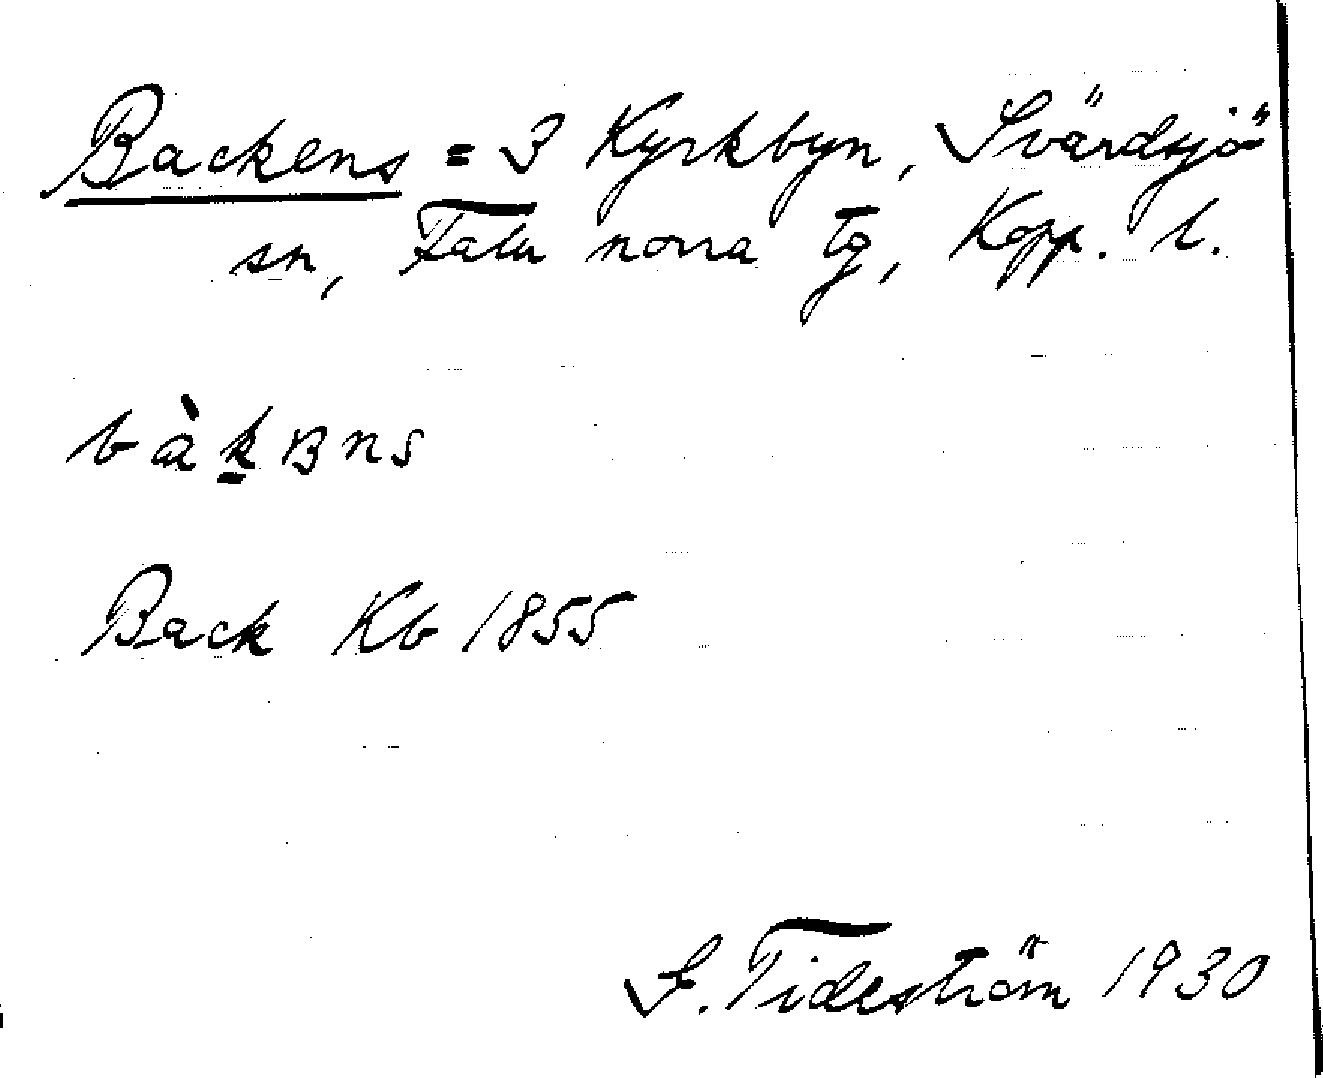 Backens = 3 Kyrkbyn, Svärdsjö
sn, Falu norra tg, Kopp. l.
bàk̲ʙns
Back Kb 1855
S. Tideström 1930